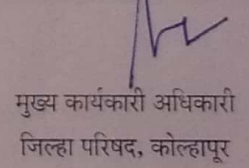 मुख्य कार्यकारी अधिकारी
जिल्हा परिषद, कोल्हापूर